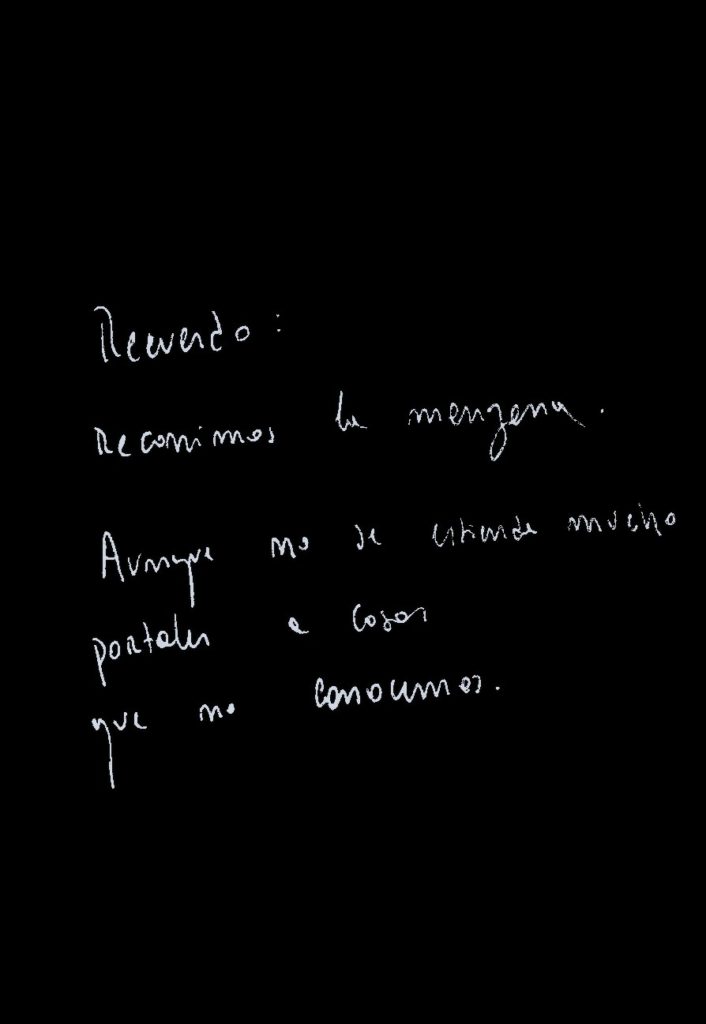 Recuerdo:
Recorrimos la manzana.
Aunque no se entiende mucho
portales a cosas
que no conocemos.